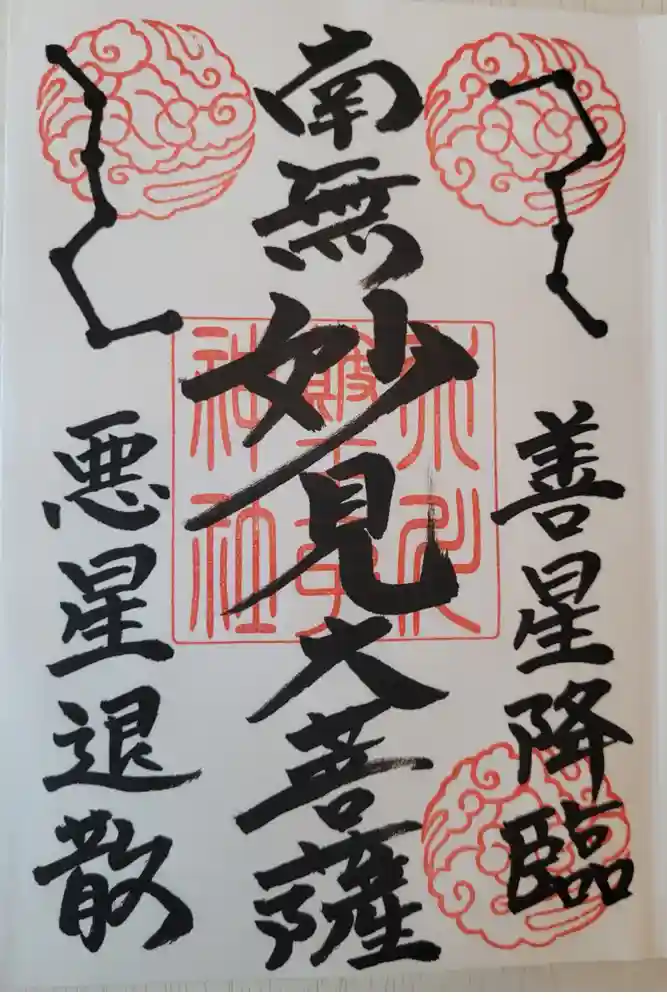 善星降臨
南無妙見大菩薩
悪星退散